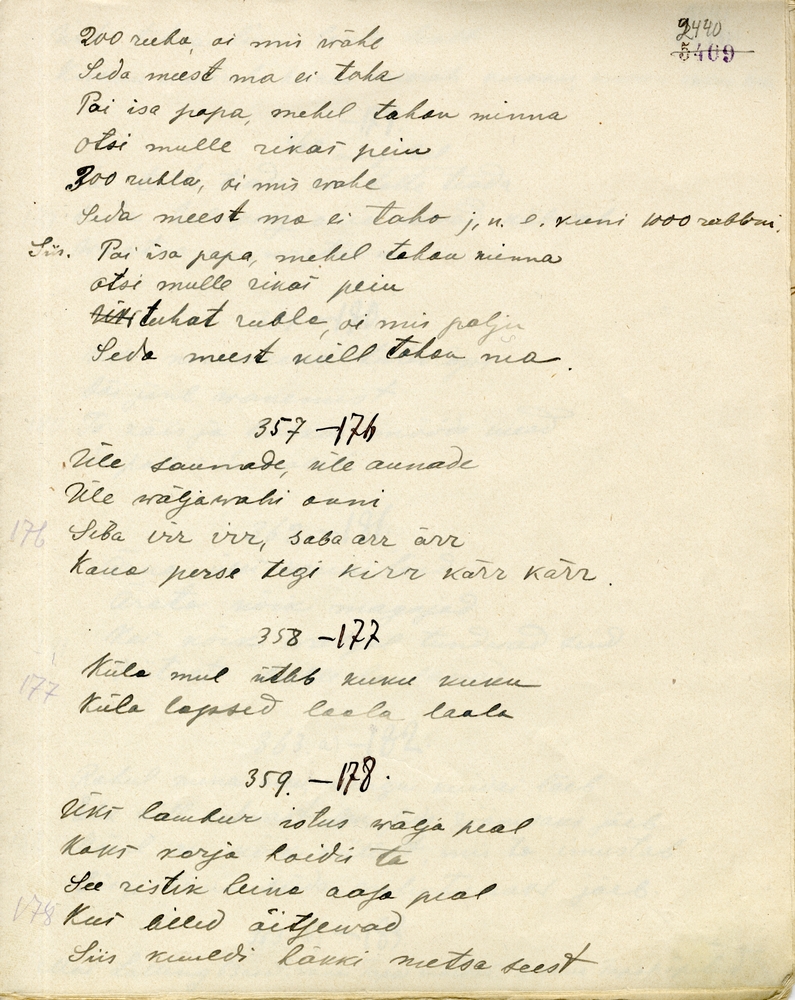 2440
5409
200 rubla, oi mis wähe
Seda meest ma ei taha
Pai isa papa, mehel tahan minna
Otsi mulle rikas peiu
300 rubla, oi mis wähe
Seda meest ma ei taha j. n. e. kuni 1000 rublani.
Siis. Pai isa papa, mehel tahan minna
otsi mulle rikas peiu
tuhat rubla, oi mis palju
Seda meest küll tahan ma.
357 – 176
Üle saunade, üle aunade
Üle wäljawahi onni
176 Siba irr irr, saba arr ärr
Kana perse tegi kirr kärr kärr.
358 – 177
177 Küla mul ütleb kuku kuku
Küla lapsed laala laala
359. – 178.
Üks lambur istus wälja peal
Kaks karja hoidis ta
See ristik heina aasa peal
178 Kus lilled äitsewad
Siis kuuldi häkki metsa seest